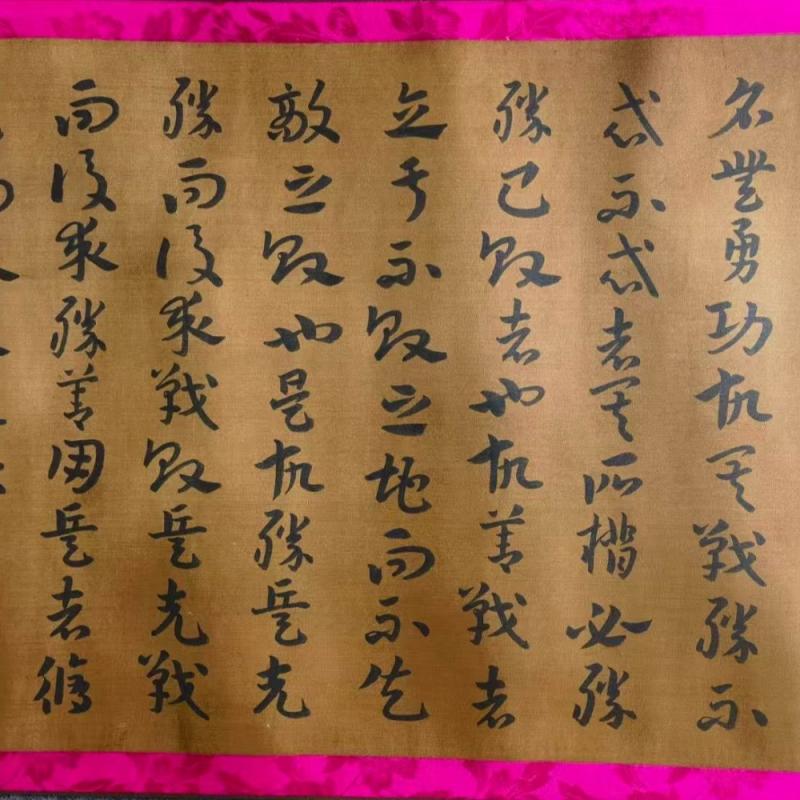 名無勇功故其戰勝不
忒不忒者其所措必勝
勝已敗者也故善戰者
立于不敗之地而不失
敵之敗也是故勝兵先
勝而後求戰敗兵先戰
而後求勝善用兵者脩